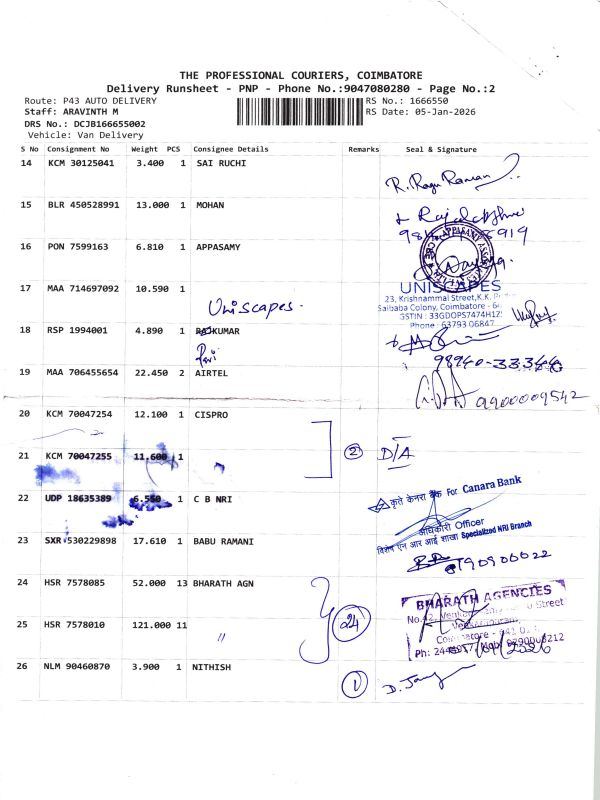 THE PROFESSIONAL COURIERS, COIMBATORE
Delivery Runsheet - PNP - Phone No.:9047080280 - Page No.:2
Route: P43 AUTO DELIVERY
RS No.: 1666550
Staff: ARAVINTH M
RS Date: 05-Jan-2026
DRS No.: DCJB166655002
Vehicle: Van Delivery
S No Consignment No Weight PCS Consignee Details Remarks Seal & Signature
14 KCM 30125041 3.400 1 SAI RUCHI
R. Ragu Raman
15 BLR 450528991 13.000 1 MOHAN
16 PON 7599163 6.810 1 APPASAMY
17 MAA 714697092 10.590 1
Uniscapes.
UNISCAPES
23, Krishnammal Street, K.K.
Saibaba Colony, Coimbatore - 64
GSTIN : 33GDOPS7474H1Z
Phone : 63793 06847
18 RSP 1994001 4.890 1 RAJKUMAR
98940-33344
19 MAA 706455654 22.450 2 AIRTEL
9900009542
20 KCM 70047254 12.100 1 CISPRO
21 KCM 70047255 11.600 1
2 D/A
22 UDP 18635389 6.550 1 C B NRI
कृते केनरा बैंक For Canara Bank
अधिकारी Officer
विशेष एन आर आई शाखा Specialized NRI Branch
23 SXR 530229898 17.610 1 BABU RAMANI
24 HSR 7578085 52.000 13 BHARATH AGN
BHARATH AGENCIES
25 HSR 7578010 121.000 11 "
24
26 NLM 90460870 3.900 1 NITHISH
1